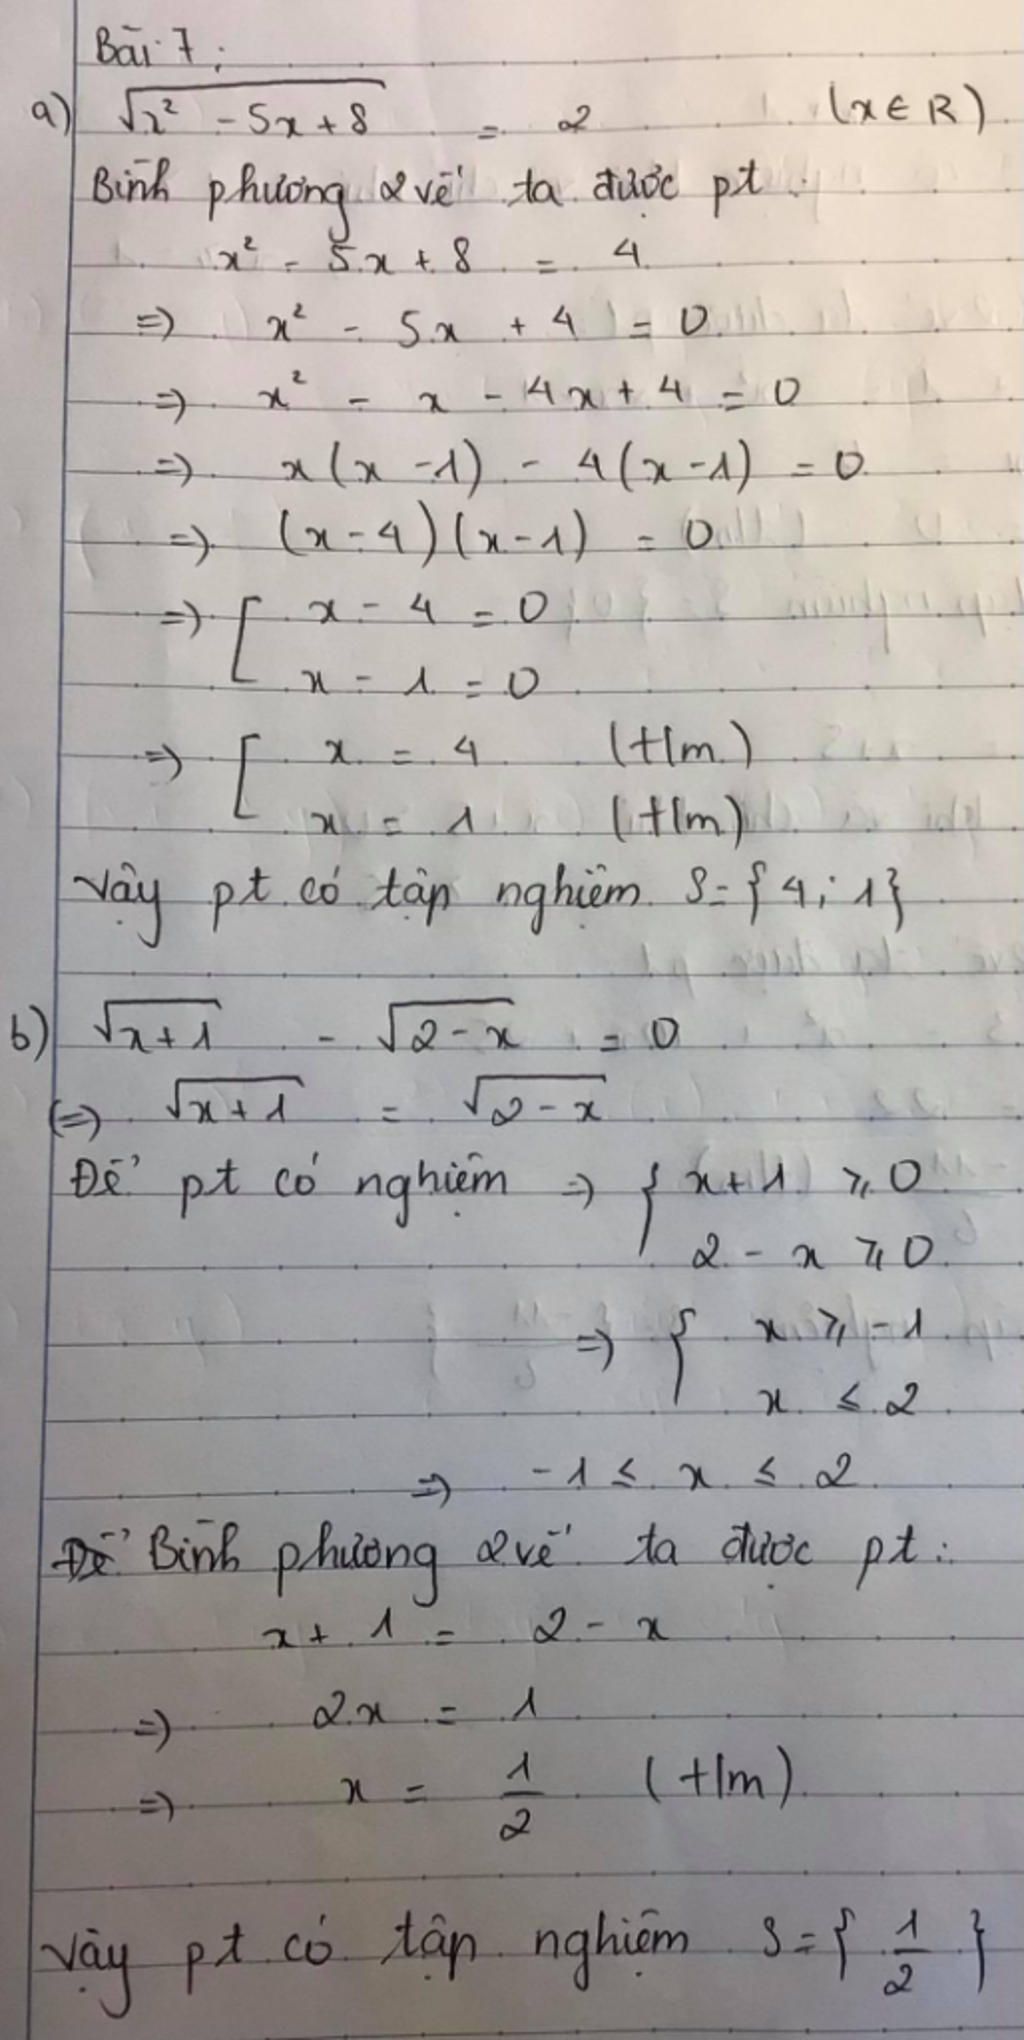 Bài 7:
a) √(x² - 5x + 8) = 2 (x ∈ R)
Bình phương 2 vế ta được pt:
x² - 5x + 8 = 4
=> x² - 5x + 4 = 0
=> x² - x - 4x + 4 = 0
=> x(x - 1) - 4(x - 1) = 0
=> (x - 4)(x - 1) = 0
=> [ x - 4 = 0
x - 1 = 0
=> [ x = 4 (t/m)
x = 1 (t/m)
Vậy pt có tập nghiệm S = {4; 1}
b) √(x + 1) - √(2 - x) = 0
(=> √(x + 1) = √(2 - x)
Để pt có nghiệm => { x + 1 ⩾ 0
2 - x ⩾ 0
=> { x ⩾ -1
x ≤ 2
=> -1 ≤ x ≤ 2
Để Bình phương 2 vế ta được pt:
x + 1 = 2 - x
=> 2x = 1
=> x = 1/2 (t/m)
Vậy pt có tập nghiệm S = { 1/2 }